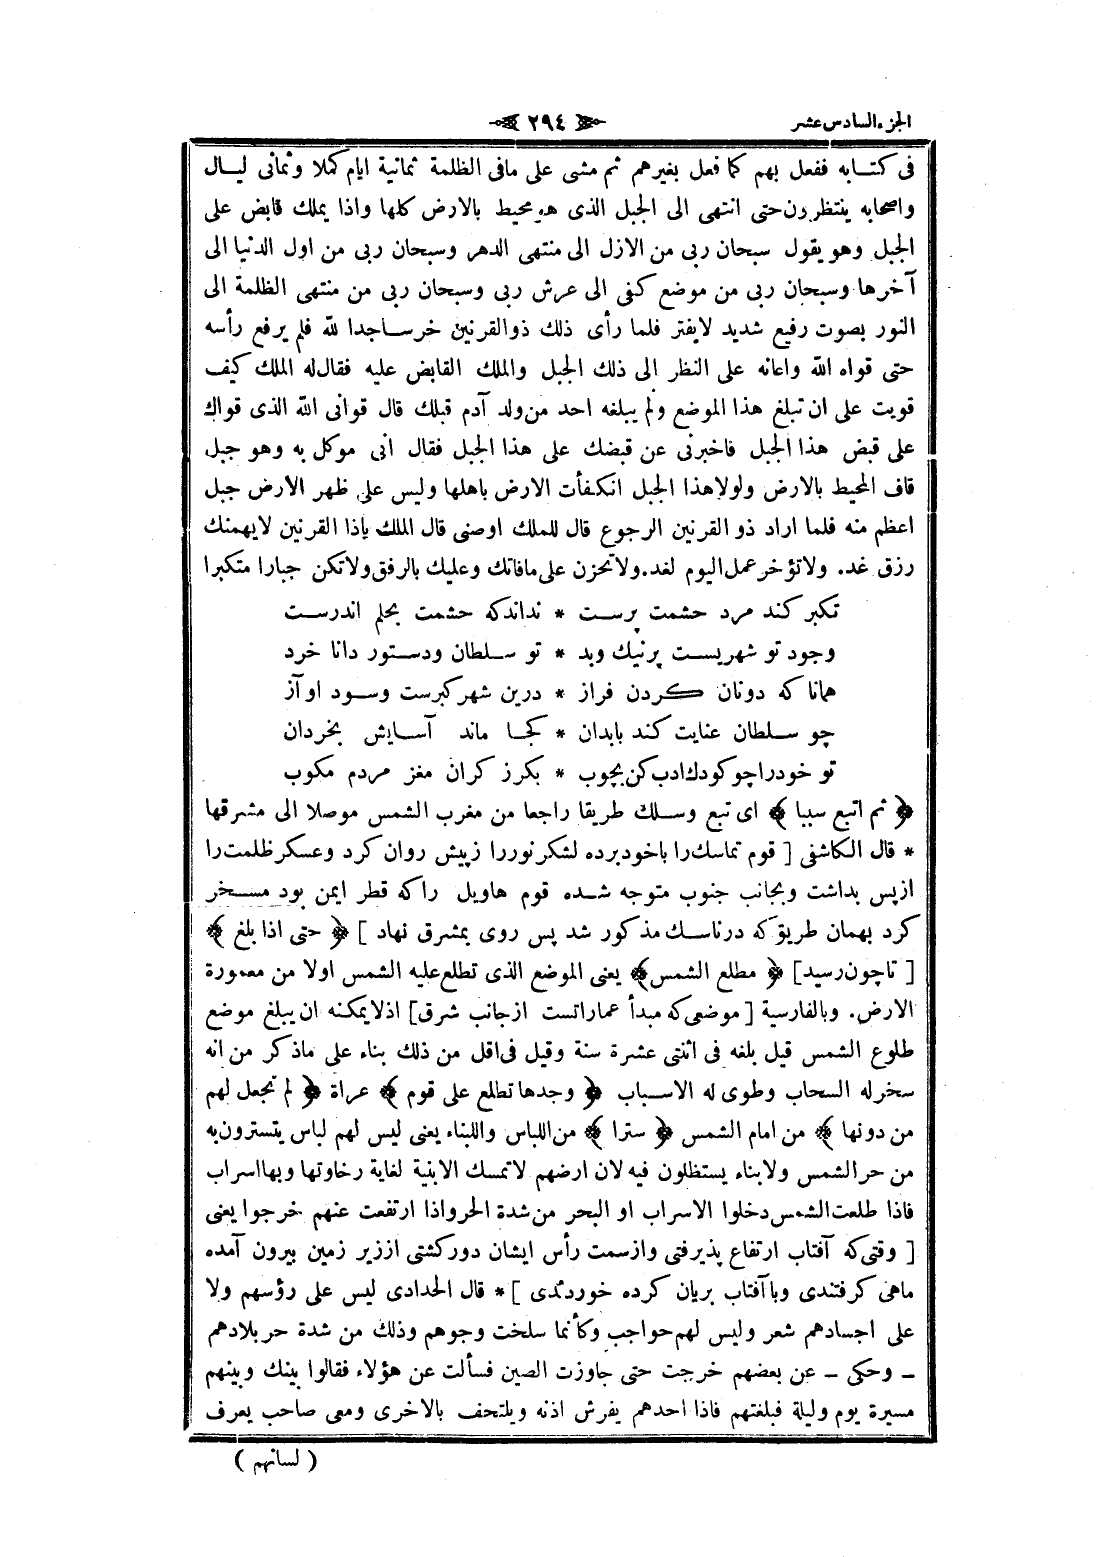 الجزء السادس عشر
٢٩٤
فى كتابه ففعل بهم كما فعل بغيرهم ثم مشى على مافى الظلمة ثمانية ايام كملا وثمانى ليال
واصحابه ينتظرون حتى انتهى الى الجبل الذى هو محيط بالارض كلها واذا بملك قابض على
الجبل وهو يقول سبحان ربى من الازل الى منتهى الدهر وسبحان ربى من اول الدنيا الى
آخرها وسبحان ربى من موضع كفى الى عرش ربى وسبحان ربى من منتهى الظلمة الى
النور بصوت رفيع شديد لايفتر فلما رأى ذلك ذوالقرنين خر ساجدا لله فلم يرفع رأسه
حتى قواه الله واعانه على النظر الى ذلك الجبل والملك القابض عليه فقال له الملك كيف
قويت على ان تبلغ هذا الموضع ولم يبلغه احد من ولد آدم قبلك قال قوانى الله الذى قواك
على قبض هذا الجبل فاخبرنى عن قبضك على هذا الجبل فقال انى موكل به وهو جبل
قاف المحيط بالارض ولولا هذا الجبل انكفأت الارض باهلها وليس على ظهر الارض جبل
اعظم منه فلما اراد ذو القرنين الرجوع قال للملك اوصنى قال الملك ياذا القرنين لايهمنك
رزق غد. ولاتؤخر عمل اليوم لغد. ولاتحزن على مافاتك وعليك بالرفق ولاتكن جبارا متكبرا
تكبر كند مرد حشمت پرست * نداندكه حشمت بحلم اندرست
وجود تو شهريست پرنيك وبد * تو سلطان ودستور دانا خرد
همانا كه دونان كردن فراز * درين شهر كبرست وسود او آز
چو سلطان عنايت كند بابدان * كجا ماند آسايش بخردان
تو خودرا چو كودك ادب كن بچوب * بكرز كران مغز مردم مكوب
﴿ ثم اتبع سببا ﴾ اى تبع وسلك طريقا راجعا من مغرب الشمس موصلا الى مشرقها
* قال الكاشفى [ قوم تماسك را باخود برده لشكر نوررا زپيش روان كرد وعسكر ظلمت را
ازپس بداشت وبجانب جنوب متوجه شده قوم هاويل راكه قطر ايمن بود مسخر
كرد بهمان طريق كه درناسك مذكور شد پس روى بمشرق نهاد ] ﴿ حتى اذا بلغ ﴾
[ تاچون رسيد] ﴿ مطلع الشمس ﴾ يعنى الموضع الذى تطلع عليه الشمس اولا من معمورة
الارض. وبالفارسية [ موضعى كه مبدأ عماراتست ازجانب شرق] اذلا يمكنه ان يبلغ موضع
طلوع الشمس قيل بلغه فى اثنتى عشرة سنة وقيل فى اقل من ذلك بناء على ماذكر من انه
سخرله السحاب وطوى له الاسباب ﴿ وجدها تطلع على قوم ﴾ عراة ﴿ لم نجعل لهم
من دونها ﴾ من امام الشمس ﴿ سترا ﴾ من اللباس والبناء يعنى ليس لهم لباس يتسترون به
من حر الشمس ولابناء يستظلون فيه لان ارضهم لاتمسك الابنية لغاية رخاوتها وبها اسراب
فاذا طلعت الشمس دخلوا الاسراب او البحر من شدة الحر واذا ارتفعت عنهم خرجوا يعنى
[ وقتى كه آفتاب ارتفاع پذيرفتى وازسمت رأس ايشان دور كشتى اززير زمين بيرون آمده
ماهى كرفتندى وباآفتاب بريان كرده خوردندى ] * قال الحدادى ليس على رؤسهم ولا
على اجسادهم شعر وليس لهم حواجب وكأنما سلخت وجوهم وذلك من شدة حر بلادهم
ـ وحكى ـ عن بعضهم خرجت حتى جاوزت الصين فسألت عن هؤلاء فقالوا بينك وبينهم
مسيرة يوم وليلة فبلغتهم فاذا احدهم يفرش اذنه ويلتحف بالاخرى ومعى صاحب يعرف
( لسانهم )